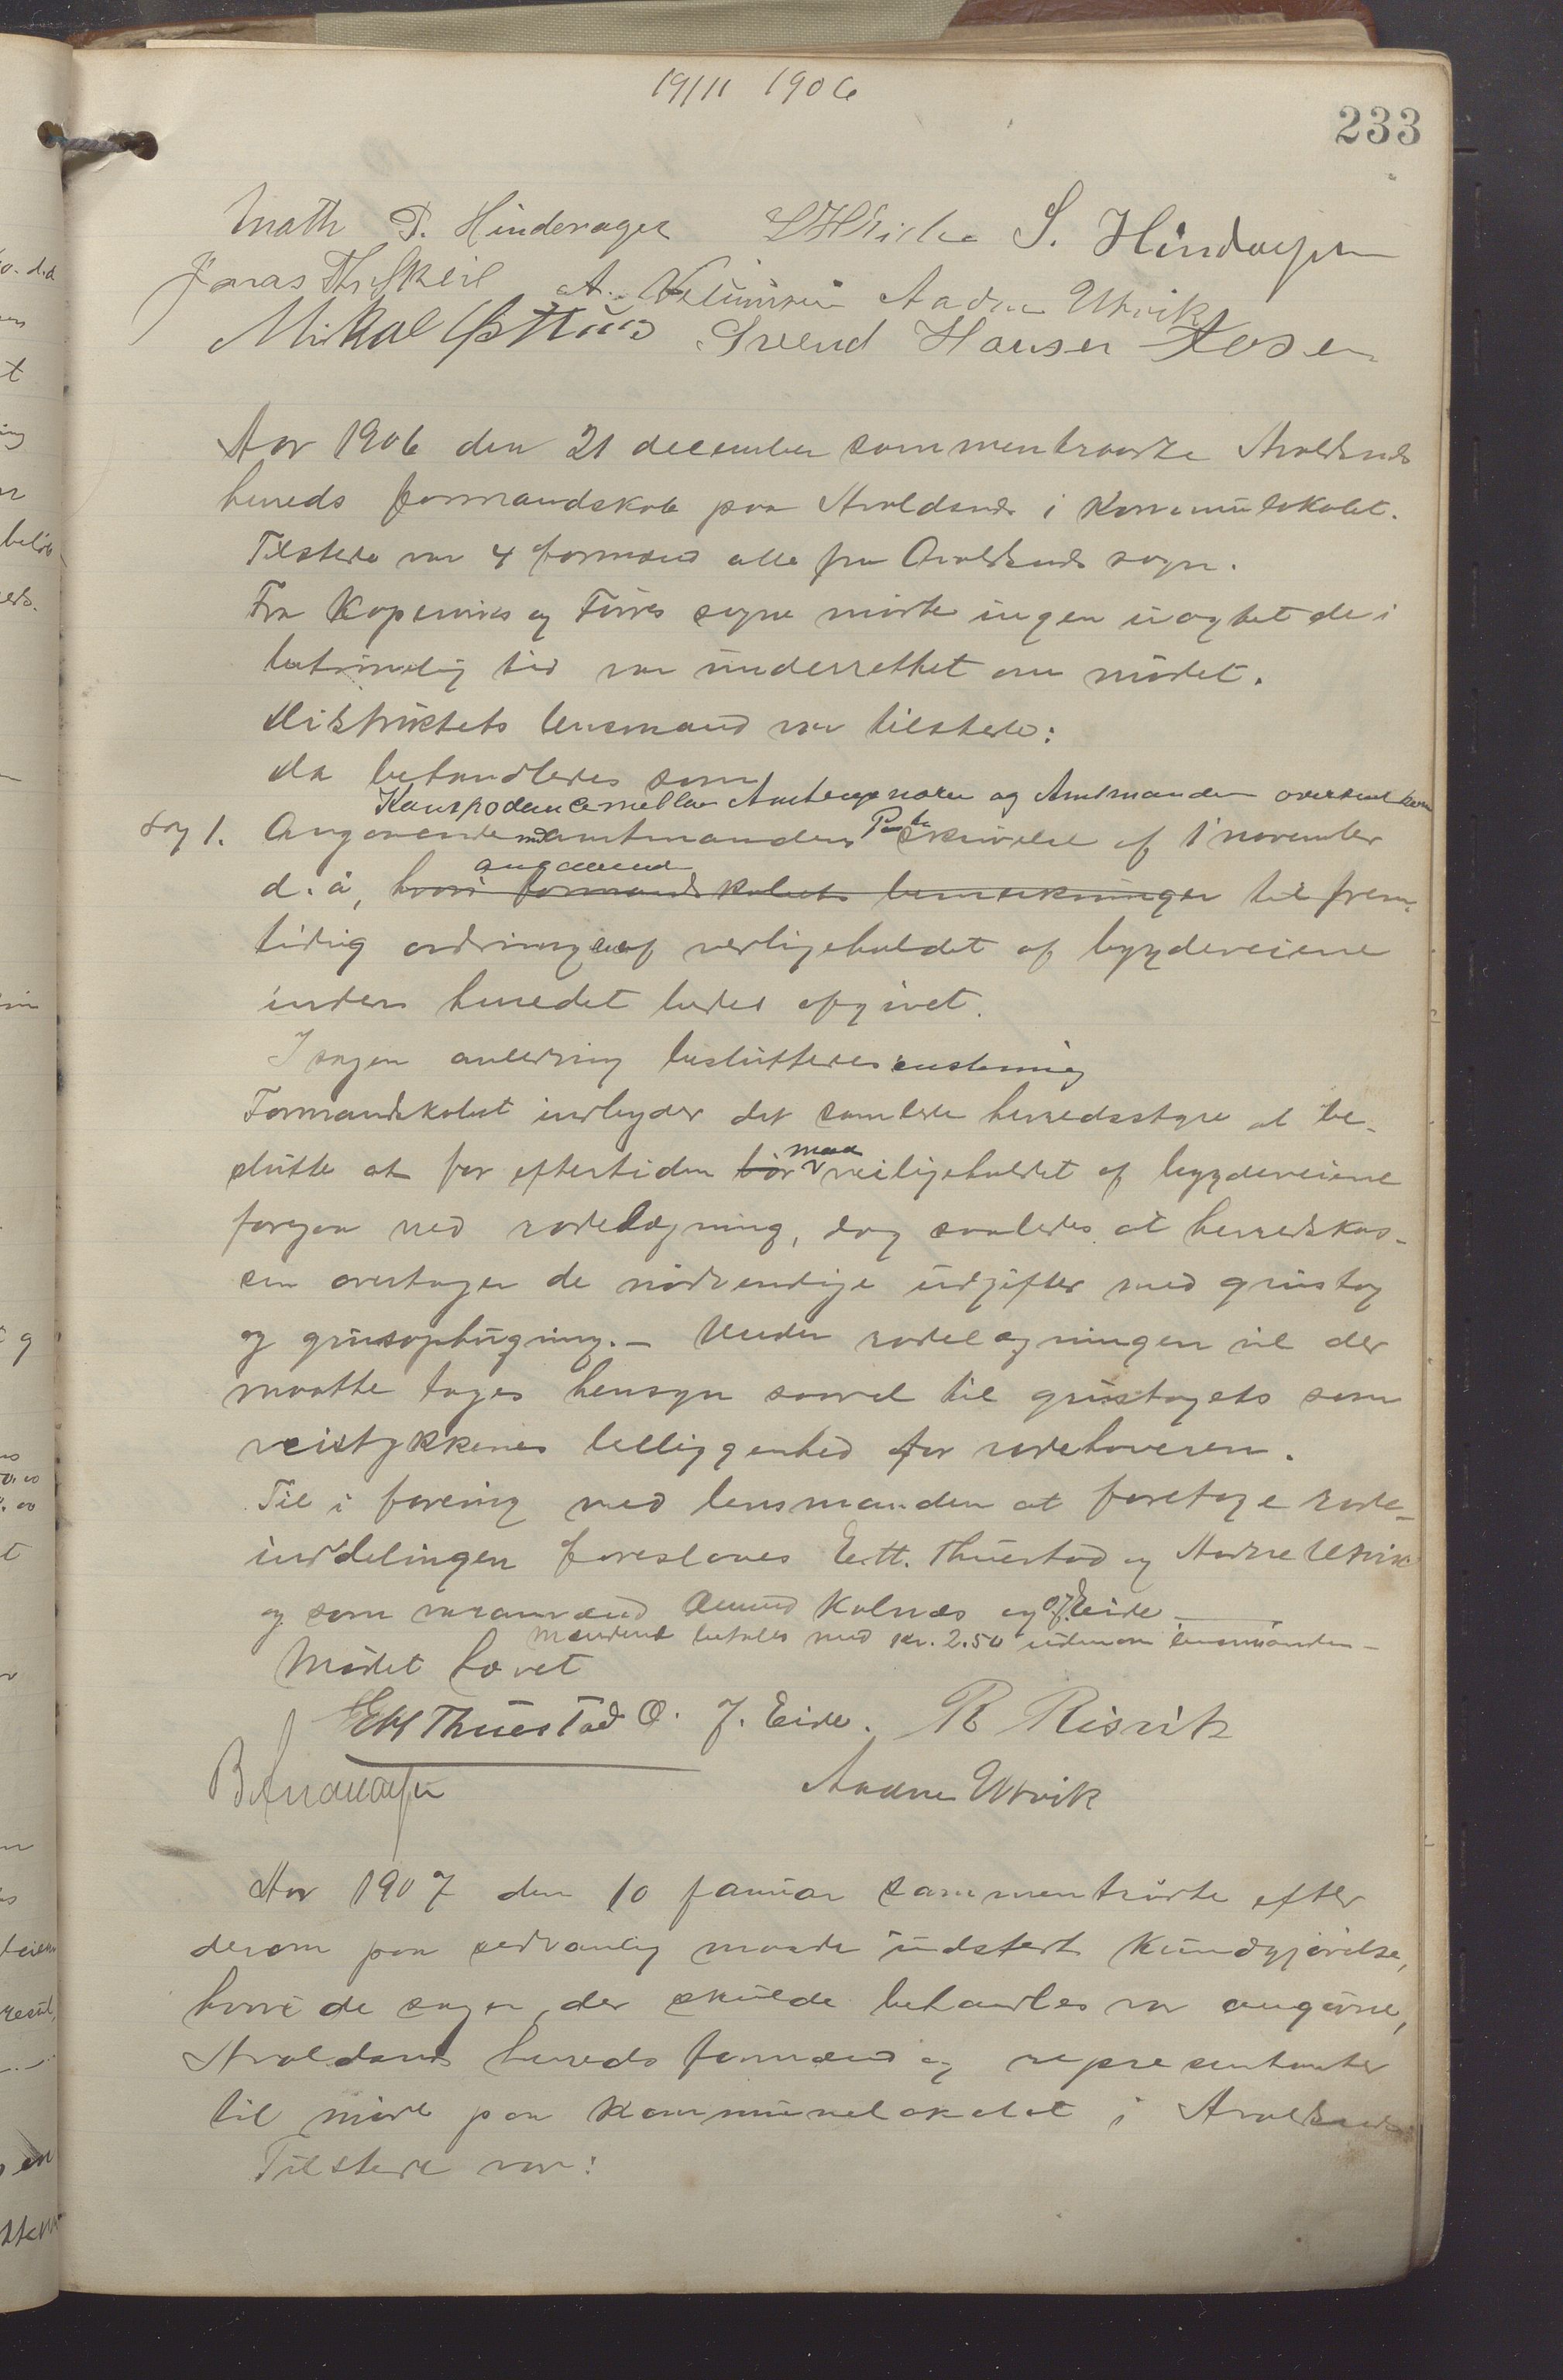 19/11 1906
233
Math P. Hinderager S. Hindaager
Jonas Aadne Utvik
Mikal Svend Hansen Aosen
Aar 1906 den 21 december sammentraadte Avaldsnes
herreds formandskab paa Avaldsnes i Kommunelokalet.
Tilstede var 4 formænd alle fra Avaldsnes sogn.
Fra Kopervik og Førres sogne mødte ingen uagtet de i
betimelig tid var underrettet om mødet.
Distriktets lensmand var tilstede:
da behandledes som
Korrspodance mellem Amtsingeniøren og Amtmanden oversendt
Sag 1. Angaaende amtmandens skrivelse af 1 november
angaaend
d. å, hvori formandskabets bemerkninger til frem-
tidig ordning af vedligeholdet af bygdeveiene
inden herredet bedes afgivet.
I sagen anledning besluttedes enstemig
Formandskabet indbyder det samlede herredsstyre at be-
maa
slutte at for eftertiden bør veiligeholdet af bygdeveiene
foregaa ved rodelægning, dog saaledes at herredskas-
sen overtager de nødvendige udgifter med grustag
og grusophugning. – Under rodelægningen vil der
maatte tages hensyn saavel til grustagets som
veistykkenes beliggenhed for rodehaveren.
Til i forening med lensmanden at foretage rode-
inddelingen foresloaes E. H. Thuestad og Aadne Utvik
og som varamænd Amund Kalnæs og O. J. Eide
Mændene betales med kr. 2.50 udenom lensmanden –
Mødet hævet
EH Thuestad O. J. Eide. R Risvik
Aadne Utvik
Aar 1907 den 10 januar sammentraadte efter
derom paa sedvanlig maade udstedt kundgjørelse,
hvori de sager, der skulde behandles var angivne,
Avaldsnes herreds formænd og representanter
til møde paa Kommunelokalet i Avaldsnes
Tilstede var: